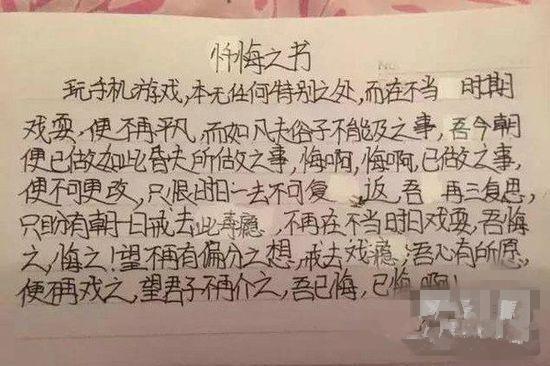 忏悔之书
玩手机游戏,本无任何特别之处,而在不当 时期
戏耍,便不再平凡,而如凡夫俗子不能及之事,吾今朝
便已做如此昏夫所做之事,悔啊,悔啊,已做之事,
便不可更改,只恨时日一去不可复 返,吾 再三复思,
只盼有朝一日戒去此毒瘾,不再在不当时日戏耍,吾悔
之,悔之!望不再有偏分之想,戒去戏瘾,吾心有所愿,
便不再戏之,望君子不再介之,吾已悔,已悔啊!